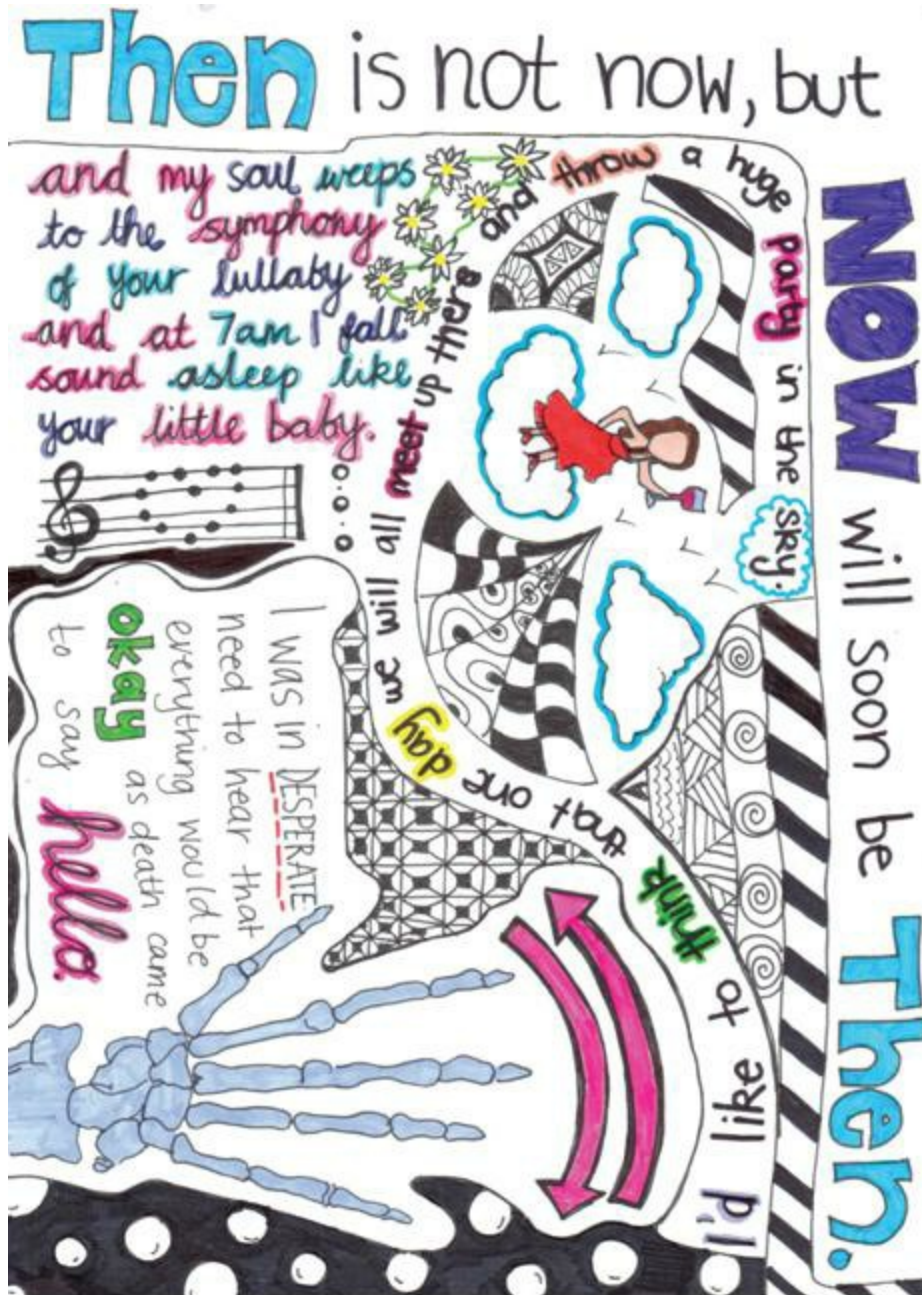 Then is not now, but
NOW will soon be Then.
and my soul weeps
to the symphony
of your lullaby
and at 7am I fall
sound asleep like
your little baby.
I'd like to think that one day we will all meet up there and throw a huge party in the sky.
I was in DESPERATE
need to hear that
everything would be
okay as death came
to say hello.